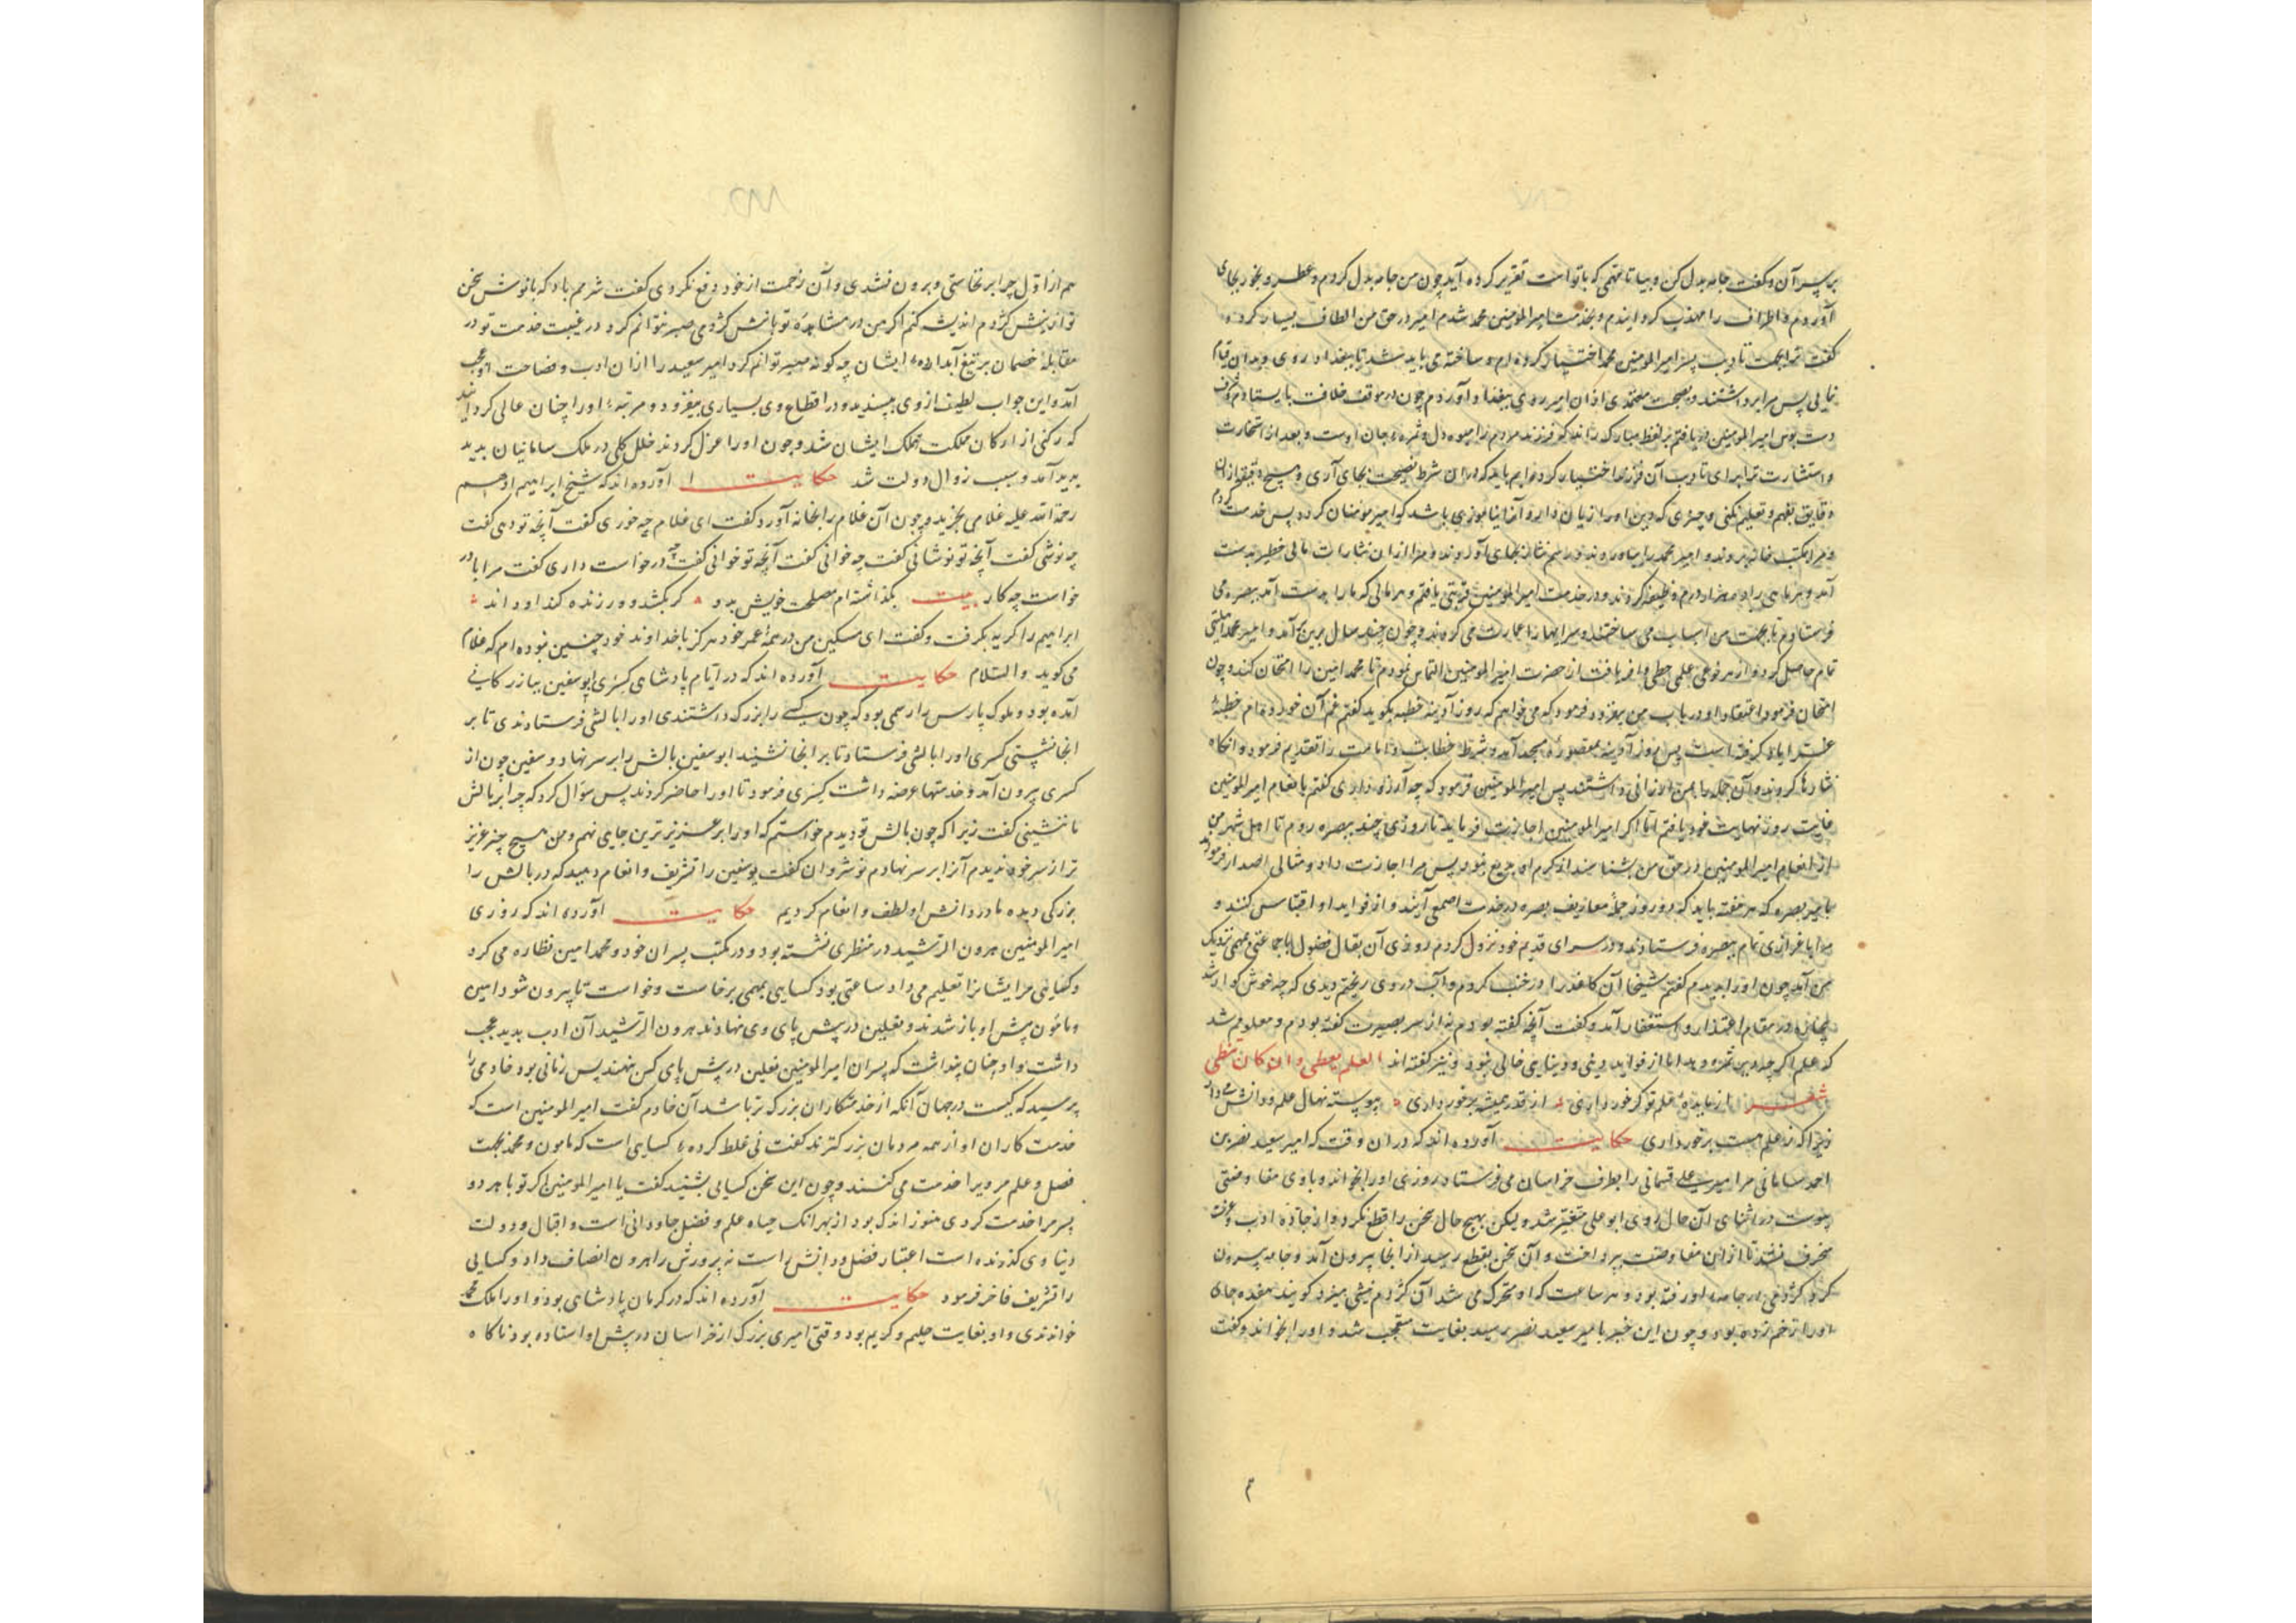 بر پسر آن و گفت جامه بدل کن و بیا تا مهمی که با تو است تقریر کرده آید چون من جامه بدل کردم و عطر و بخور بجای
آوردم و اطراف را مهذب کردانیدم و بخدمت امیر المومنین محمد شدم امیر در حق من الطاف بسیار کرد و
کفت ترا بجهت تادیب پسر امیر المومنین محمد اختیار کرده ام و ساخته می باید شد تا ببغداد روی و بدان قیام
نمایی پس مرا برداشتند و بصحبت معتمدی ازان امیر روی ببغداد آوردم چون در موقف خلافت بایستادم و شرف
دست بوس امیر المومنین دریافتم بر لفظ مبارک راند که فرزند مردم را میوه دل و ثمره جان است و بعد از استخارت
و استشارت ترا برای تادیب آن فرزند اختیار کرده ایم باید که دران شرط نصیحت بجای آری و هیچ دقیقه ازان
دقایق تفهیم و تعلیم نکنی و چیزی که دین او را زیان دارد آنرا نیاموزی باشد که او امیر مومنان کردد پس خدمت کردم
و مرا بمکتب خانه بردند و امیر محمد را بیاوردند و رسم نثار بجای آوردند و مرا ازان نثارات مالی خطیر بدست
آمد و هر ماهی را ده هزار درم وظیفه کردند و در خدمت امیر المومنین قربتی یافتم و هر مالی که ما را بدست آمد ببصره می
فرستادم تا بجهت من اسباب می ساختند و سرایها را عمارت می کردند و چون چند سال برین برآمد و امیر محمد امین
تمام حاصل کرد و از هر نوعی علمی حظی وافر یافت از حضرت امیر المومنین التماس نمودم تا محمد امین را امتحان کند و چون
امتحان فرمود اعتقاد او در باب من بیفزود فرمود که می خواهم که روز آدینه خطبه بکوید کفتم غم آن خورده ام خطبهٔ
غرا یاد کرفته است پس روز آدینه بمقصورهٔ مسجد آمد و شرط خطابت و امامت را تقدیم فرمود و انکاه
نثارها کردند و آن جمله را بمن ارزانی داشتند پس امیر المومنین فرمود که چه آرزو داری کفتم بانعام امیر المومنین
غایت روز نهایت خود یافتم اما اکر امیر المومنین اجازت فرماید تا روزی چند ببصره روم تا اهل شهر من
از انعام امیر المومنین در حق من بشناسند از کرم او بدیع نبود پس مرا اجازت داد و مثالی اصدار فرمودند
بامیر بصره که هر هفته باید که دو روز جملهٔ معاریف بصره در خدمت اصمعی آیند و از فواید او اقتباس کنند و
مرا باعزازی تمام ببصره فرستادند و در سرای قدیم خود نزول کردم روزی آن بقال فضول با جماعتی مهمی نزدیک
من آمد چون او را بدیدم کفتم شیخا آن کاغذ را در خنب کردم و آب دروی ریختم دیدی که چه خوش کوار شد
بیچاره در مقام اعتذار و استغفار آمد و کفت آنچه کفته بودم نه از سر بصیرت کفته بودم و معلوم شد
که علم اکر چه دیر ثمره دهد اما از فواید دینی و دنیایی خالی نبود و نیز کفته اند العلم یعطی و ان کان یبطی
شعر از مایدهٔ علم تو کر خورداری از قدر همیشه برخورداری پیوسته نهال علم و دانش می دار
زیرا که ز علم هست برخورداری حکایت آورده اند که دران وقت که امیر سعید نصر بن
احمد سامانی مر امیر علی قتمانی را بطرف خراسان می فرستاد روزی او را بخواند و با وی مفاوضتی
پیوست در اثنای آن حال روی ابو علی متغیر شد و لیکن بهیچ حال سخن را قطع نکرد و از جادهٔ ادب و عزت
منحرف نشد تا ازان مفاوضت بپرداخت و آن سخن بقطع رسید از انجا بیرون آمد و جامه بیرون
کرد کژدمی در جامهٔ او رفته بود و هر ساعت که او متحرک می شد آن کژدم نیشی میزد کویند هفده جای
او را زخم زده بود و چون این خبر بامیر سعید نصر رسید بغایت متعجب شد و او را بخواند و کفت
هم از اول چرا برنخاستی و برون نشدی و آن زحمت از خود دفع نکردی کفت شرمم باد که با نوش سخن
تو از نیش کژدم اندیشه کنم اکر من در مشاهدهٔ تو با نیش کژدمی صبر نتوانم کرد در غیبت خدمت تو در
مقابلهٔ خصمان بر تیغ آبدار ایشان چه کونه صبر توانم کرد امیر سعید را ازان ادب و فصاحت او عجب
آمد و این جواب لطیف از وی بپسندید و در اقطاع وی بسیاری بیفزود و مرتبهٔ او را چنان عالی کردانید
که رکنی از ارکان مملکت و ملک ایشان شد و چون او را عزل کردند خلل کلی در ملک سامانیان بدید
بدید آمد و سبب زوال دولت شد حکایت آورده اند که شیخ ابراهیم ادهم
رحمة الله علیه غلامی بخرید و چون آن غلام را بخانه آورد کفت ای غلام چه خوری کفت آنچه تو دهی کفت
چه نوشی کفت آنچه تو نوشانی کفت چه خوانی کفت آنچه تو خوانی کفت چه درخواست داری کفت مرا با در
خواست چه کار بیت بکذاشته ام مصلحت خویش بدو کر بکشد ور زنده کند او داند
ابراهیم را کریه بکرفت و کفت ای مسکین من در همهٔ عمر خود هرکز با خداوند خود چنین نبوده ام که غلام
می کوید والسلام حکایت آورده اند که در ایام پادشاهی کسری ابو سفین ببازرکانی
آمده بود و ملوک پارس را رسمی بود که چون کسی را بزرک داشتندی او را بالشی فرستادندی تا بر
انجا نشستی کسری او را بالشی فرستاد تا بر انجا نشیند ابو سفین بالش را بر سر نهاد و سفین چون از
کسری بیرون آمد و خدمتها عرضه داشت کسری فرمود تا او را حاضر کردند پس سؤال کرد که چرا بر بالش
ما ننشینی کفت زیرا که چون بالش تو دیدم خواستم که او را بر عزیزترین جای نهم و من هیچ چیز عزیز
تر از سر خود ندیدم آنرا بر سر نهادم نوشروان کفت بوسفین را تشریف و انعام دهید که در بالش را
بزرکی دیده ما در دانش او لطف و انعام کردیم حکایت آورده اند که روزی
امیر المومنین هرون الرشید در منظری نشسته بود و در مکتب پسران خود و محمد امین نظاره می کرد
و کسایی مر ایشانرا تعلیم می داد ساعتی بود کسایی بمهمی برخاست و خواست تا بیرون شود امین
و مأمون پیش او باز شدند و نعلین در پیش پای وی نهادند هرون الرشید آن ادب بدید عجب
داشت و او چنان پنداشت که پسران امیر المومنین نعلین در پیش پای کس ننهند پس زمانی بود خادمی را
پرسید که کیست در جهان آنکه از خدمتکاران بزرک تر باشد آن خادم کفت امیر المومنین است که
خدمت کاران او از همه مردمان بزرکترند کفت نی غلط کرده ء کسایی است که مامون و محمد بجهت
فضل و علم مر ویرا خدمت می کنند و چون این سخن کسایی بشنید کفت یا امیر المومنین اکر تو با هر دو
پسر مرا خدمت کردی هنوز اندک بود از بهر انک حیاه علم و فضل جاودانی است و اقبال و دولت
دنیاوی کذرنده است اعتبار فضل و دانش راست نه پرورش را هرون انصاف داد و کسایی
را تشریف فاخر فرمود حکایت آورده اند که در کرمان پادشاهی بود و او را ملک محمد
خواندندی و او بغایت حلیم و کریم بود وقتی امیری بزرک از خراسان در پیش او استاده بود ناکاه